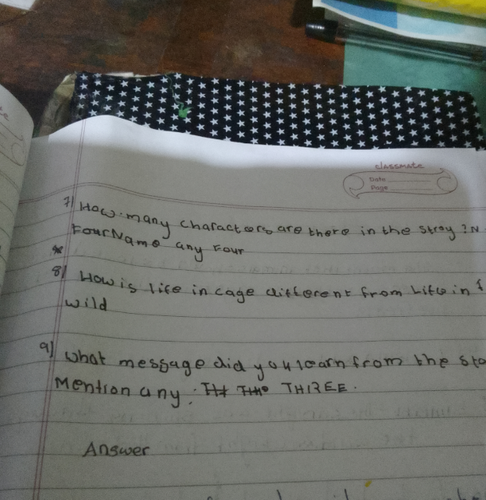 classmate
Date
Page
7) How many characters are there in the stroy ? N
Four Name any Four
8) How is life in cage different from Life in
wild
9) what message did you learn from the sto
Mention any THREE.
Answer